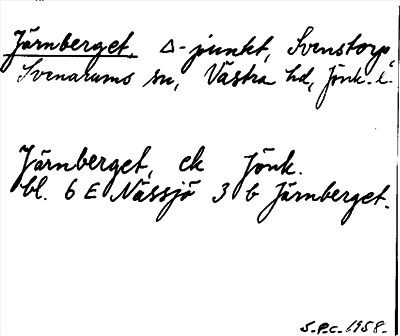 Järnberget, △-punkt, Svenstorp,
Svenarums sn, Västra hd, Jönk. l.
Järnberget, ek Jönk.
bl. 6 E Nässjö 3 b Järnberget.
S.P.C. 1958.